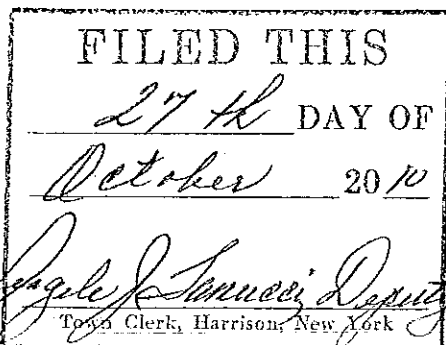 FILED THIS
27 th DAY OF
October 20 10
J Deputy
Town Clerk, Harrison, New York